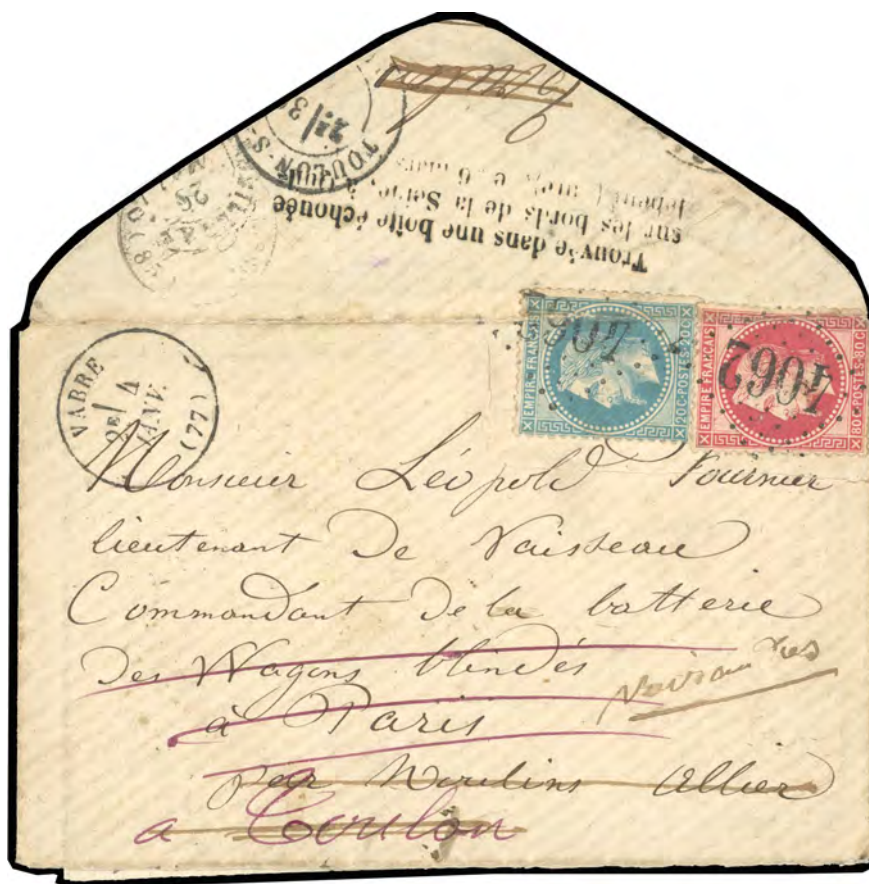 Trouvée dans une boîte échouée
sur les bords de la Seine, à
le 6 mars
TOULON-S-
VABRE
2E 4
JANV.
(77)
EMPIRE FRANÇAIS
20C POSTES 20C
4062
EMPIRE FRANÇAIS
80C POSTES 80C
4062
Monsieur Léopold Fournier
lieutenant de Vaisseau
Commandant de la batterie
des Wagons blindés
à Paris
par Moulins Allier
a Toulon